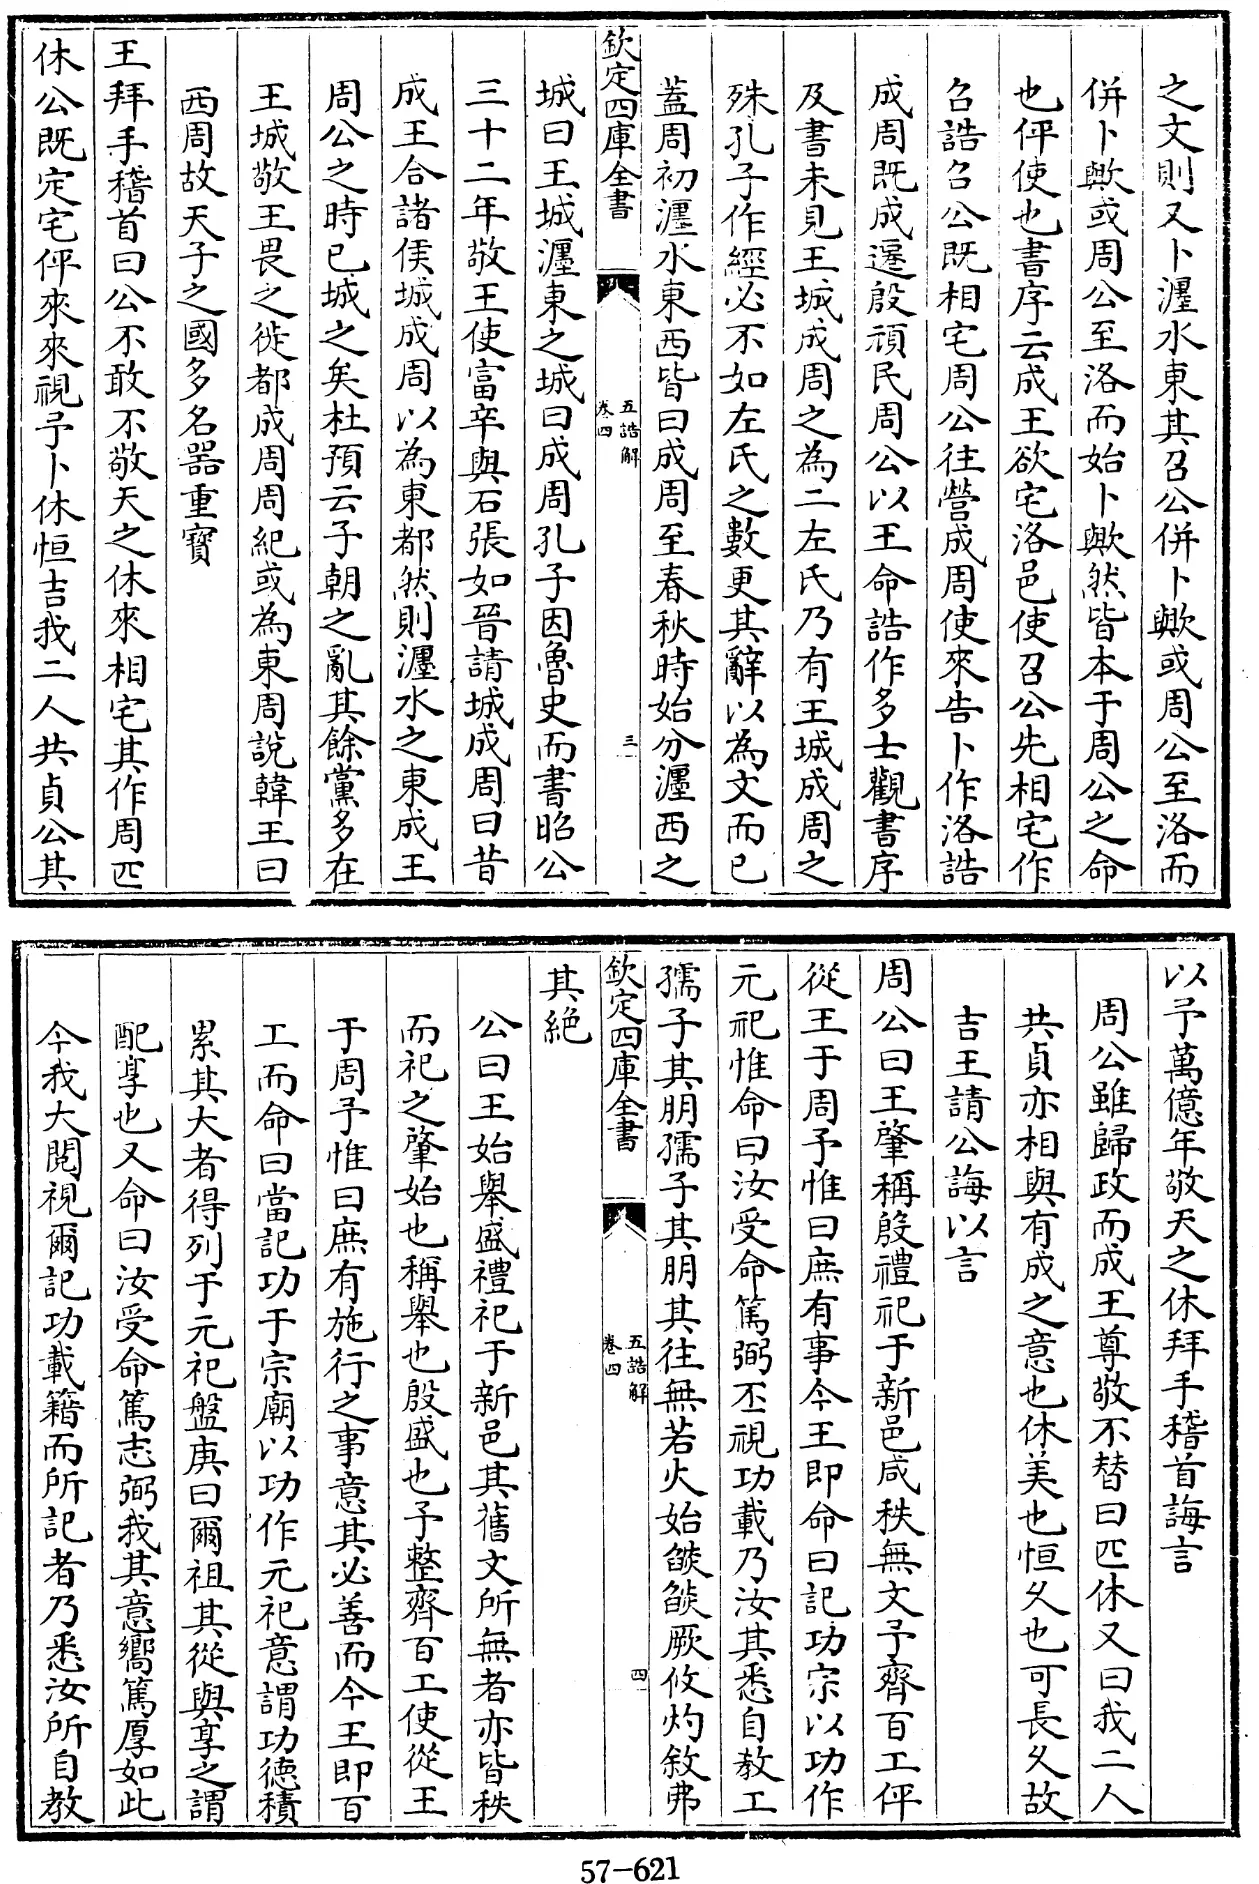 之文則又卜瀍水東其召公併卜歟或周公至洛而
併卜歟或周公至洛而始卜歟然皆本于周公之命
也伻使也書序云成王欲宅洛邑使召公先相宅作
召誥召公既相宅周公往營成周使來告卜作洛誥
成周既成遷殷頑民周公以王命誥作多士觀書序
及書未見王城成周之為二左氏乃有王城成周之
殊孔子作經必不如左氏之數更其辭以為文而已
蓋周初瀍水東西皆曰成周至春秋時始分瀍西之
欽定四庫全書
五誥解
卷四
三
城曰王城瀍東之城曰成周孔子因魯史而書昭公
三十二年敬王使富辛與石張如晉請城成周曰昔
成王合諸侯城成周以為東都然則瀍水之東成王
周公之時已城之矣杜預云子朝之亂其餘黨多在
王城敬王畏之徙都成周周紀或為東周說韓王曰
西周故天子之國多名器重寶
王拜手稽首曰公不敢不敬天之休來相宅其作周匹
休公既定宅伻來來視予卜休恒吉我二人共貞公其
以予萬億年敬天之休拜手稽首誨言
周公雖歸政而成王尊敬不替曰匹休又曰我二人
共貞亦相與有成之意也休美也恒久也可長久故
吉王請公誨以言
周公曰王肇稱殷禮祀于新邑咸秩無文予齊百工伻
從王于周予惟曰庶有事今王即命曰記功宗以功作
元祀惟命曰汝受命篤弼丕視功載乃汝其悉自教工
孺子其朋孺子其朋其往無若火始燄燄厥攸灼敘弗
欽定四庫全書
五誥解
卷四
四
其絕
公曰王始舉盛禮祀于新邑其舊文所無者亦皆秩
而祀之肇始也稱舉也殷盛也予整齊百工使從王
于周予惟曰庶有施行之事意其必善而今王即百
工而命曰當記功于宗廟以功作元祀意謂功德積
累其大者得列于元祀盤庚曰爾祖其從與享之謂
配享也又命曰汝受命篤志弼我其意嚮篤厚如此
今我大閱視爾記功載籍而所記者乃悉汝所自教
57-621